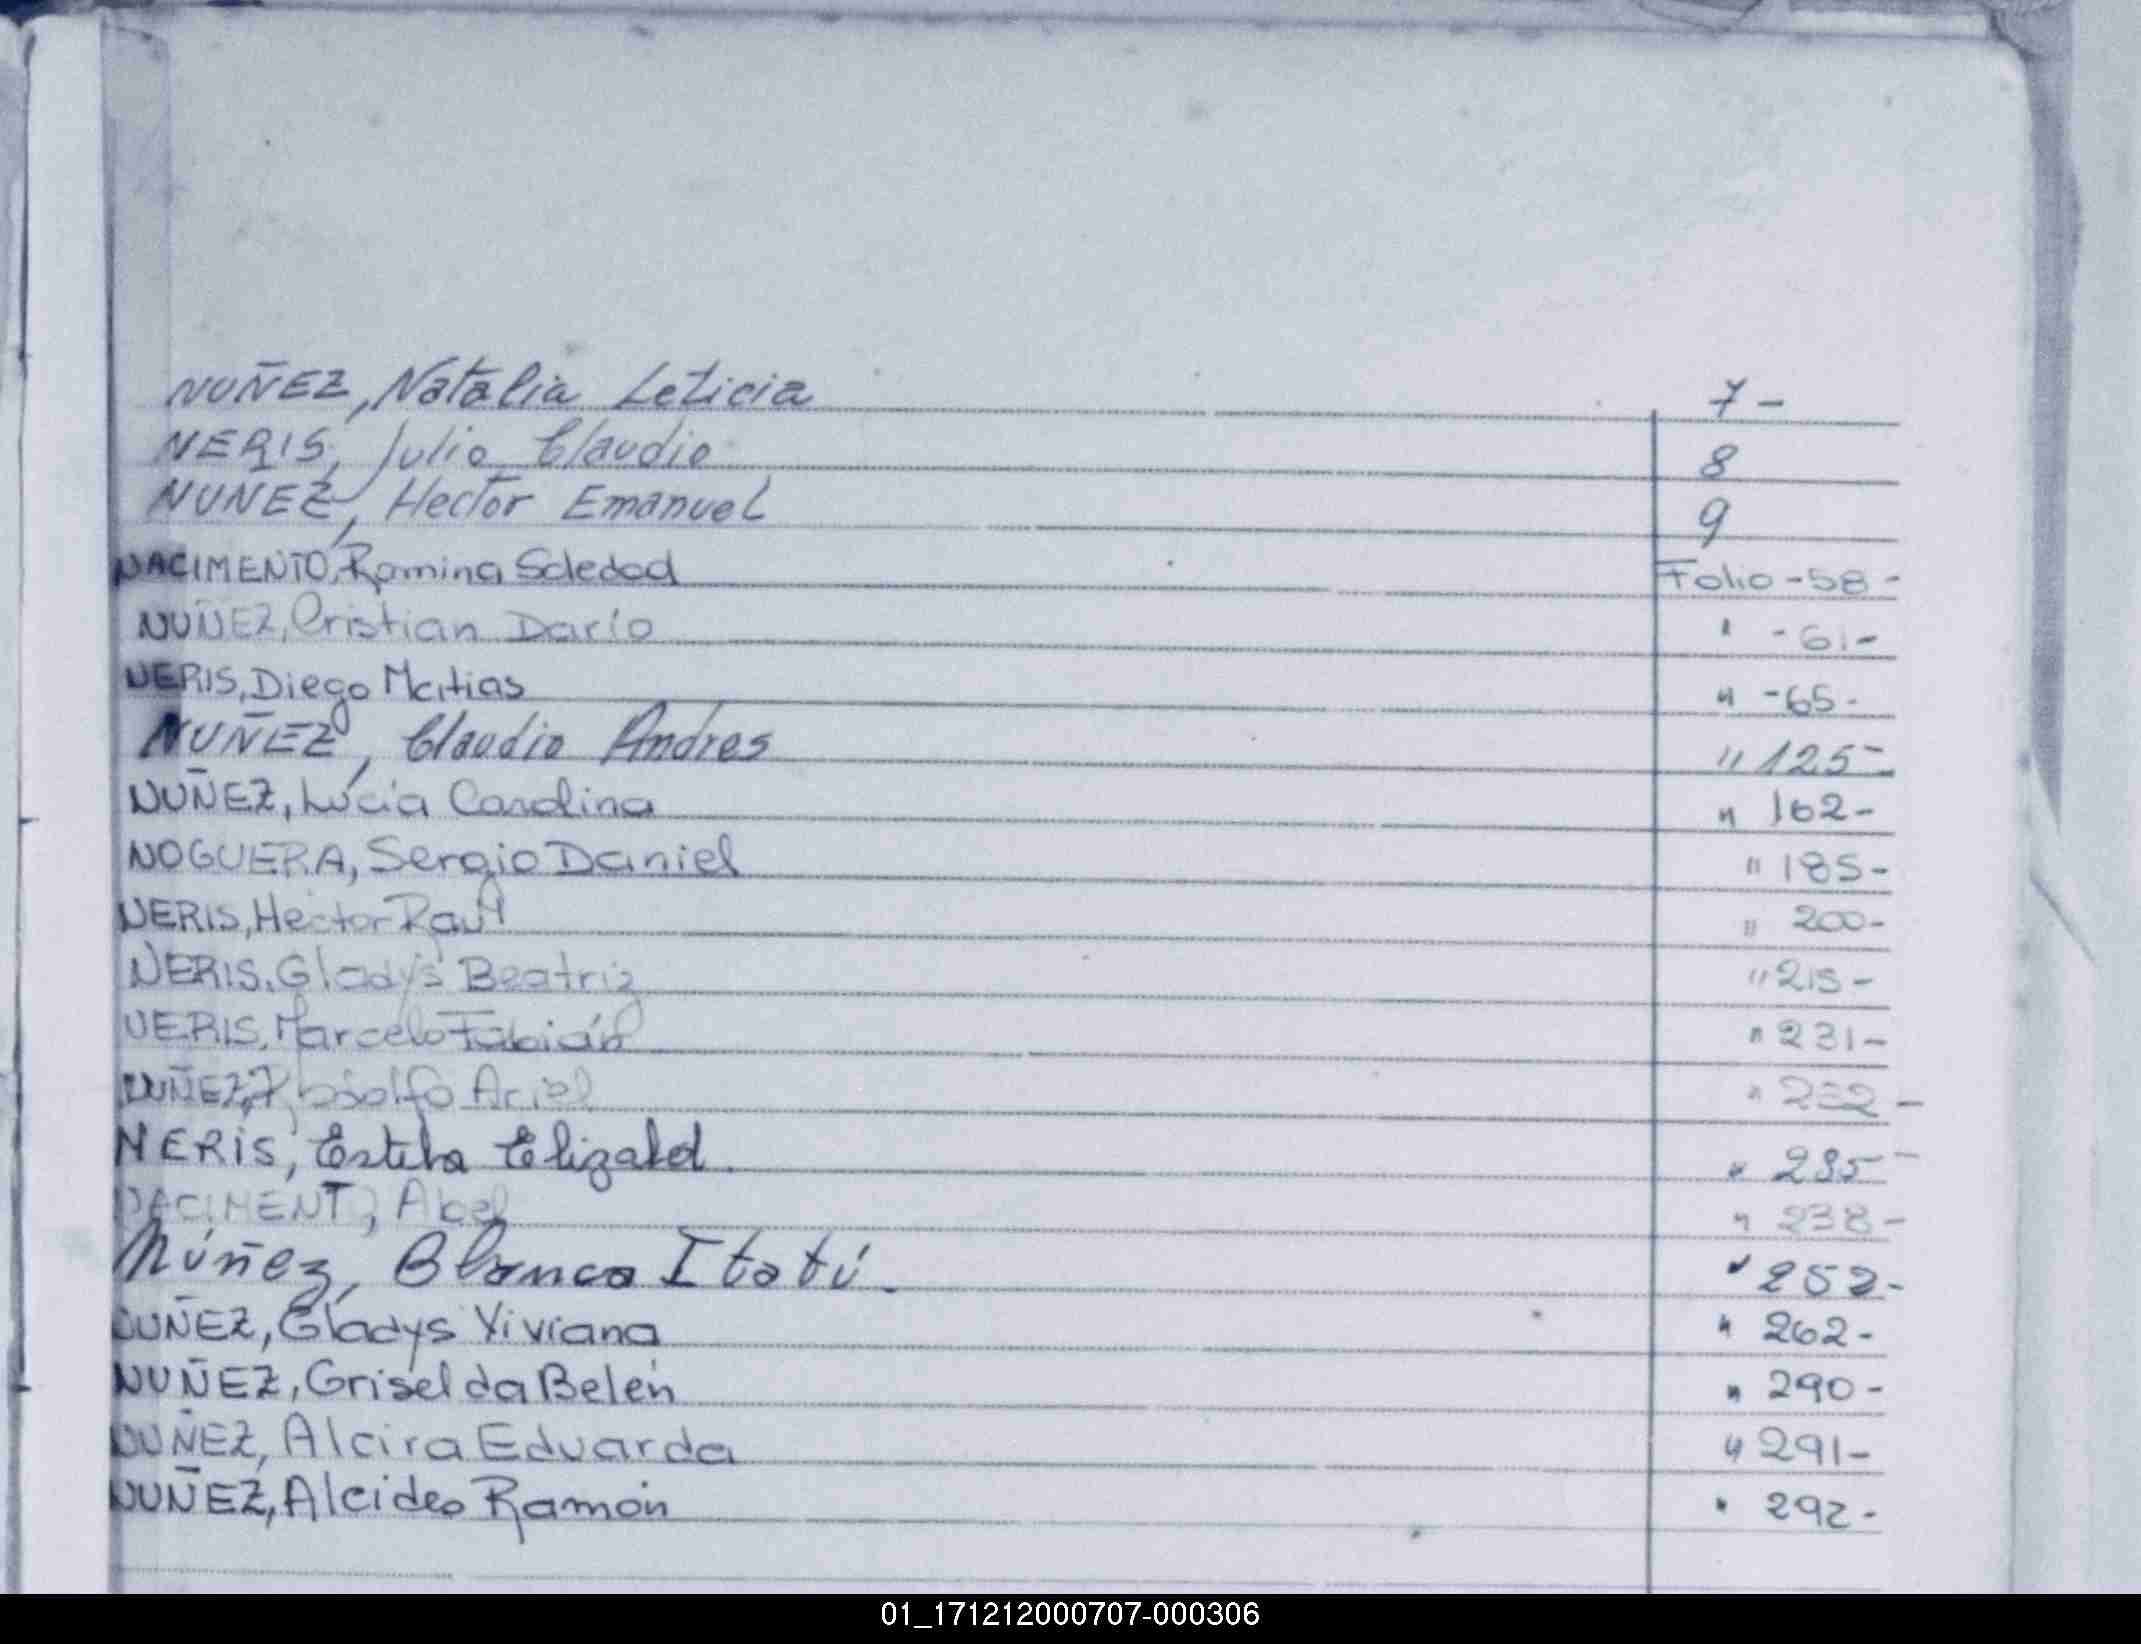 NUÑEZ, Natalia Leticia 7 -
NERIS, Julio Claudio 8
NUNEZ, Hector Emanuel 9
NACIMENTO, Romina Soledad Folio - 58 -
NUÑEZ, Cristian Darío " - 61 -
NERIS, Diego Matias " - 65 -
NUÑEZ, Claudio Andres " 125 -
NUÑEZ, Lucía Carolina " 162 -
NOGUERA, Sergio Daniel " 185 -
NERIS, Hector Raul " 200 -
NERIS, Gladys Beatriz " 215 -
NERIS, Marcelo Fabián " 231 -
NUÑEZ, Rodolfo Ariel " 232 -
NERIS, Estela Elizabet " 235 -
NACIMENT, Abel " 238 -
Núñez, Blanca Itatí. " 252 -
NUÑEZ, Gladys Viviana " 262 -
NUÑEZ, Griselda Belén " 290 -
NUÑEZ, Alcira Eduarda " 291 -
NUÑEZ, Alcides Ramón " 292 -
01_171212000707-000306